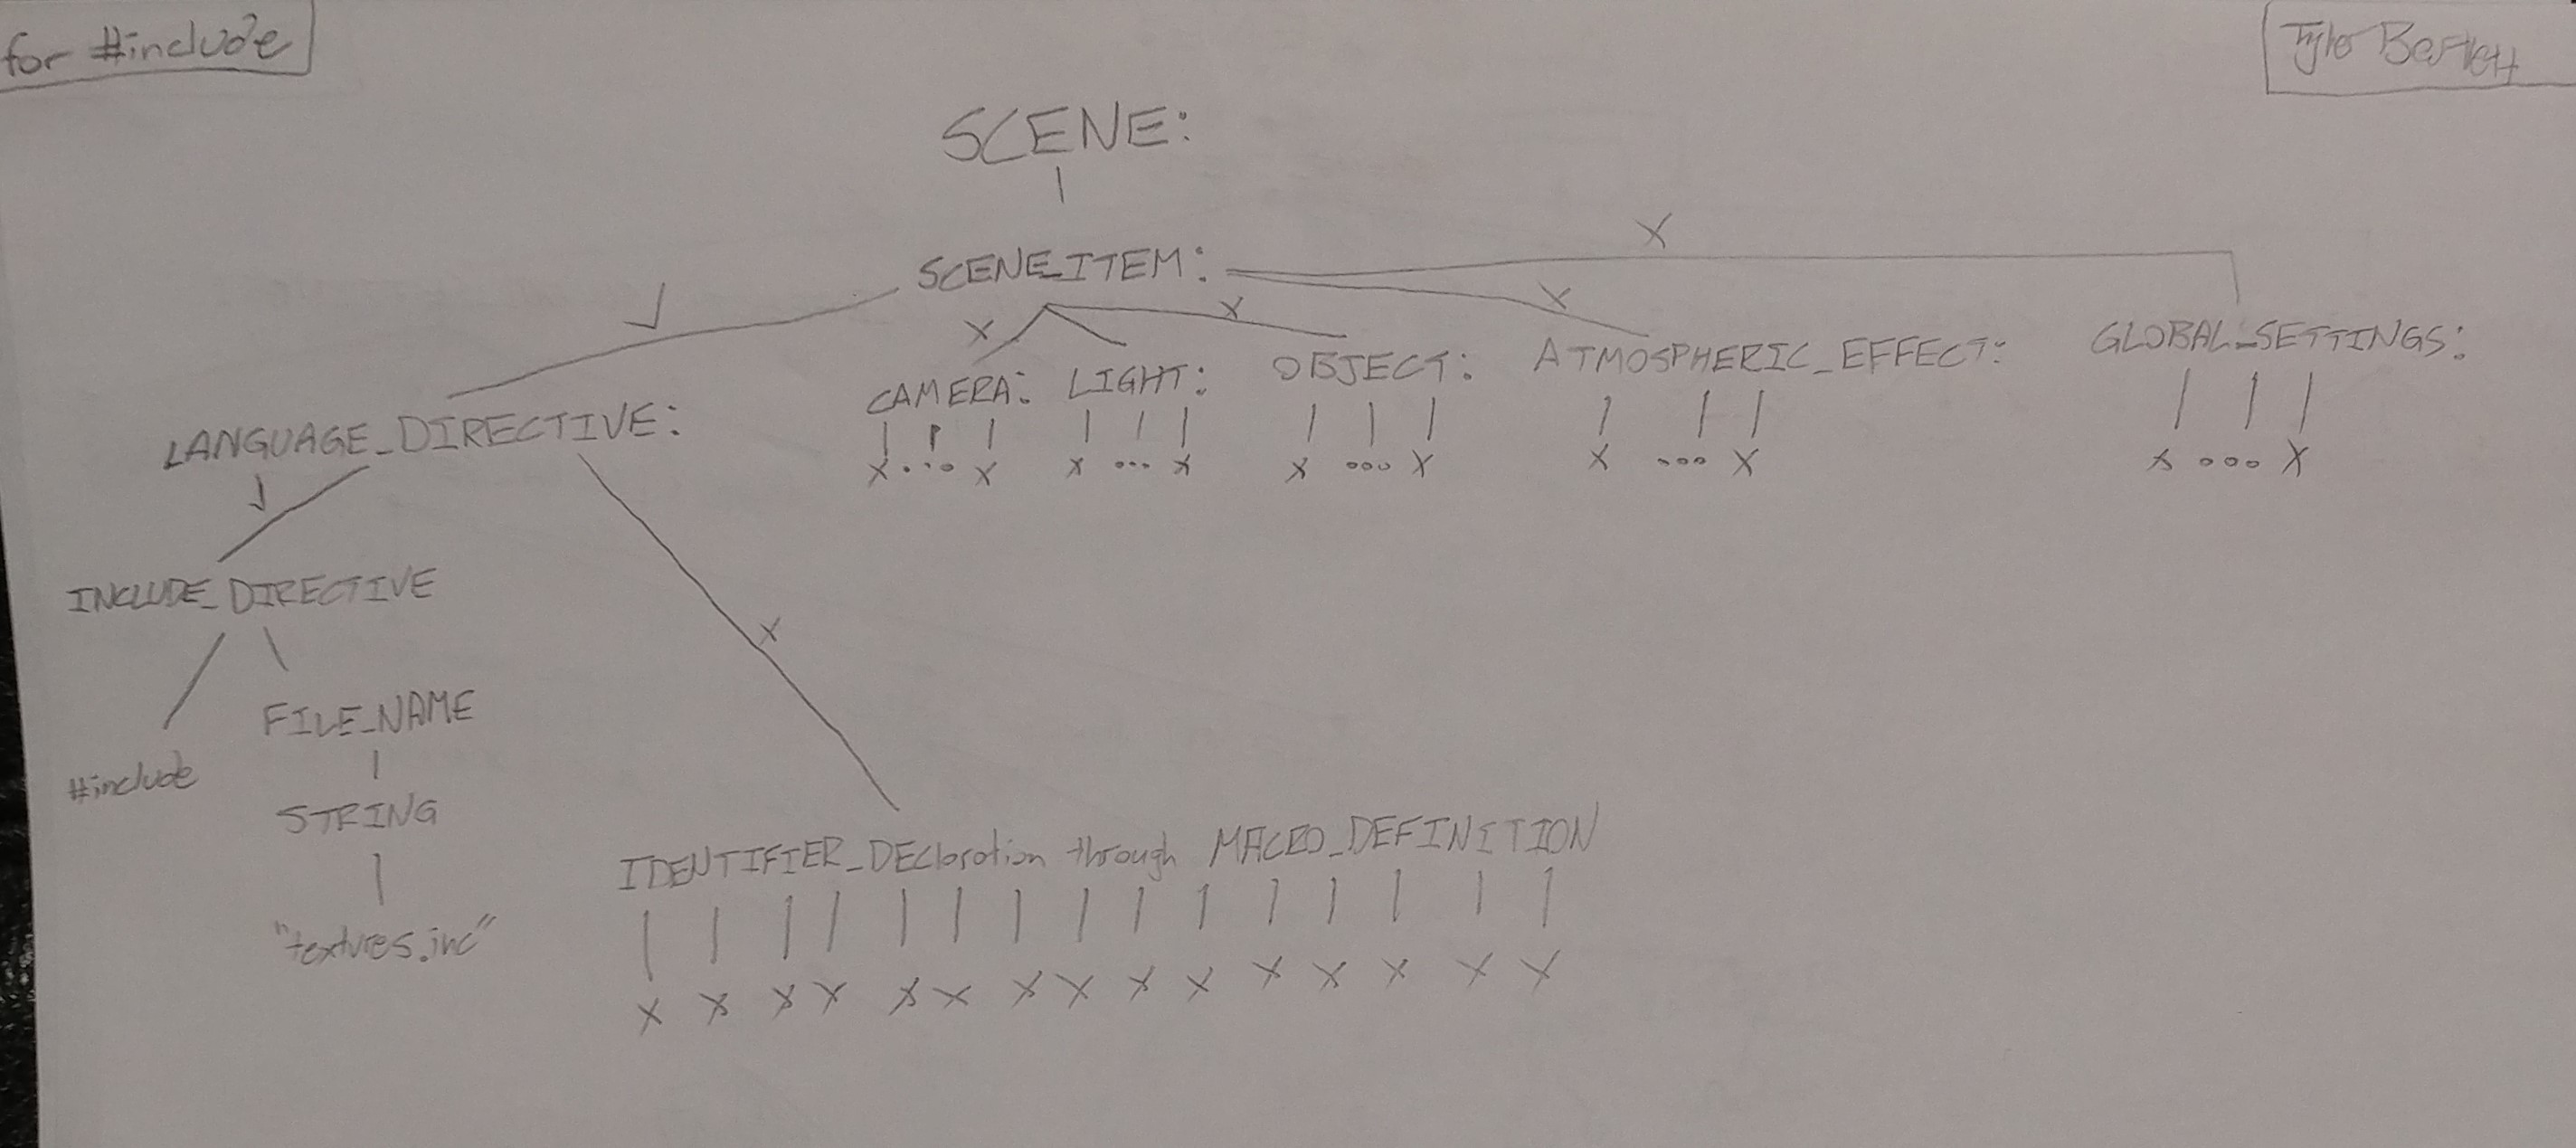 for #include
Tyler Bartlett
SCENE:
SCENE_ITEM:
✓ X X X X
LANGUAGE_DIRECTIVE:
CAMERA: LIGHT: OBJECT: ATMOSPHERIC_EFFECT: GLOBAL_SETTINGS:
X...X X...X X...X X...X X...X
✓
INCLUDE_DIRECTIVE
X
#include
FILE_NAME
STRING
"textures.inc"
IDENTIFIER_DEClaration through MACRO_DEFINITION
X X X X X X X X X X X X X X X